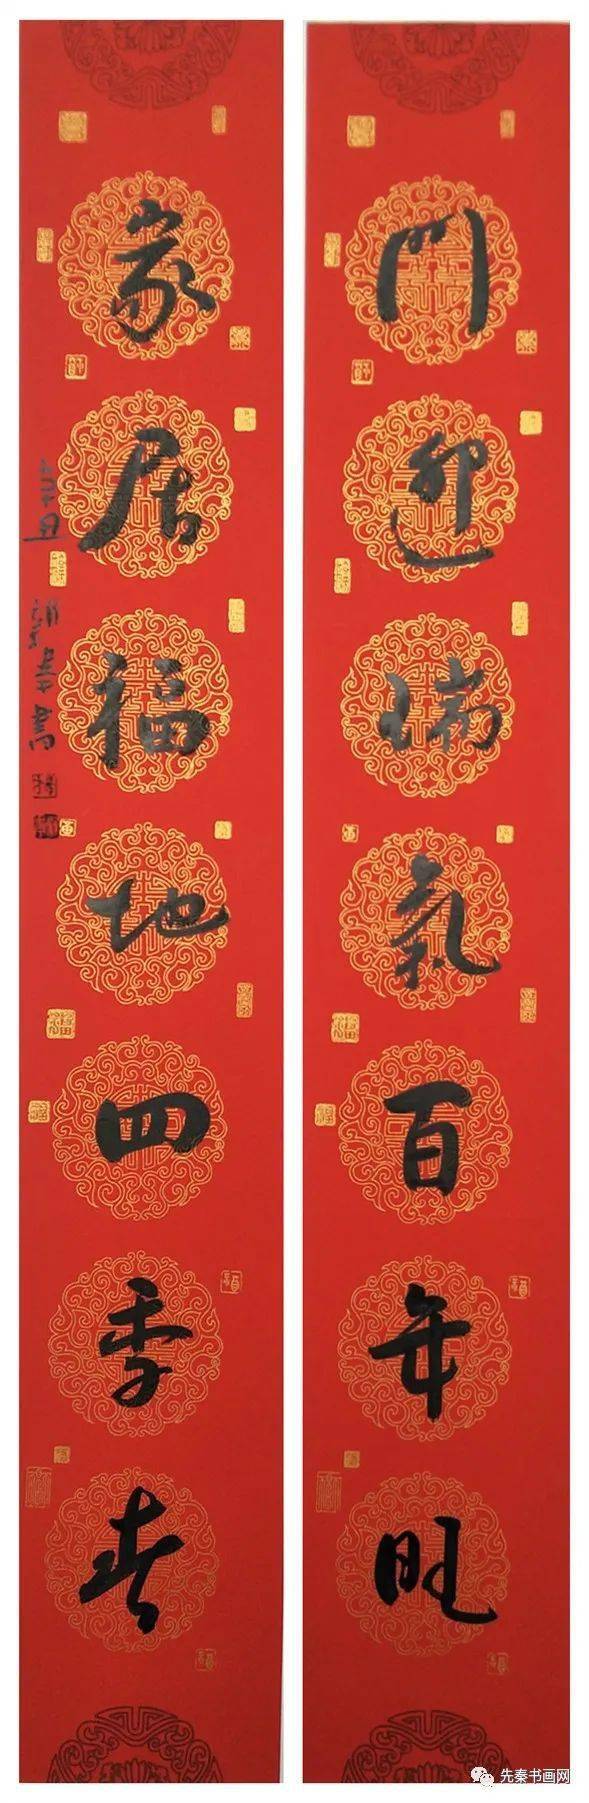 門迎瑞氣百年旺
家居福地四季春
先秦书画网